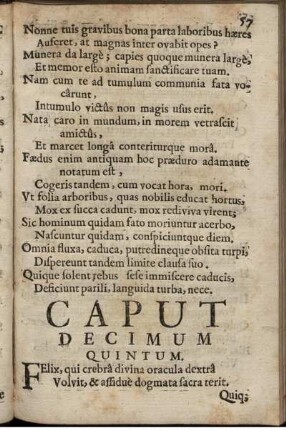 57
Nonne tuis gravibus bona parta laboribus hæres
Auferet, at magnas inter ovabit opes?
Munera da largè; capies quoque munera largè,
Et memor esto animam sanctificare tuam.
Nam cum te ad tumulum communia fata vo-
cârunt,
Intumulo victûs non magis usus erit.
Nata caro in mundum, in morem vetrascit
amictûs,
Et marcet longâ conteriturque morâ.
Fædus enim antiquam hoc præduro adamante
notatum est,
Cogeris tandem, cum vocat hora, mori.
Vt folia arboribus, quas nobilis educat hortus,
Mox ex succa cadunt, mox rediviva virent;
Sic hominum quidam fato moriuntur acerbo,
Nascuntur quidam, conspiciuntque diem.
Omnia fluxa, caduca, putredineque obsita turpi,
Dispereunt tandem limite clausa suo.
Quique solent rebus sese immiscere caducis,
Deficiunt parili, languida turba, nece.
CAPUT
DECIMUM
QUINTUM.
Felix, qui crebrâ divina oracula dextrâ
Volvit, & assiduè dogmata sacra terit.
Quiq;